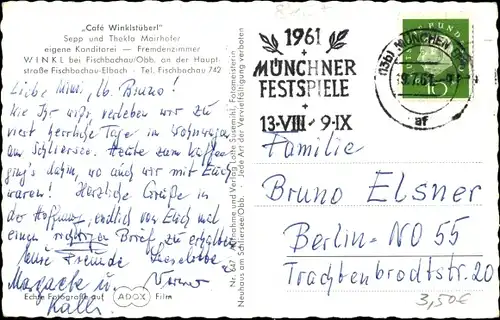 "Café Winklstüberl"
Sepp und Thekla Mairhofer
eigene Konditorei — Fremdenzimmer
WINKL bei Fischbachau/Obb. an der Haupt-
straße Fischbachau-Elbach - Tel. Fischbachau 742
Liebe Mimi, lb. Bruno!
Wie Ihr wißt, verleben wir zu
viert herrliche Tage im Wohnwagen
am Schliersee. Heute zum Kaffee
ging's dahin, wo auch wir mit Euch
waren! Herzliche Grüße in
der Hoffnung, endlich von Euch mal
einen richtigen Brief zu erhalten
Eure Freunde Lieselotte
Margarete u. Werner
Kalli.
Echte Fotografie auf ADOX Film
Nr. 647 Aufnahme und Verlag Lotte Susemihl, Fotomeisterin
Neuhaus am Schliersee/Obb. · Jede Art der Vervielfältigung verboten
1961
+
MÜNCHNER
FESTSPIELE
+
13·VIII - 9·IX
(13b) MÜNCHEN
af
15
Familie
Bruno Elsner
Berlin-NO 55
Trachtenbrodtstr. 20
3,50€